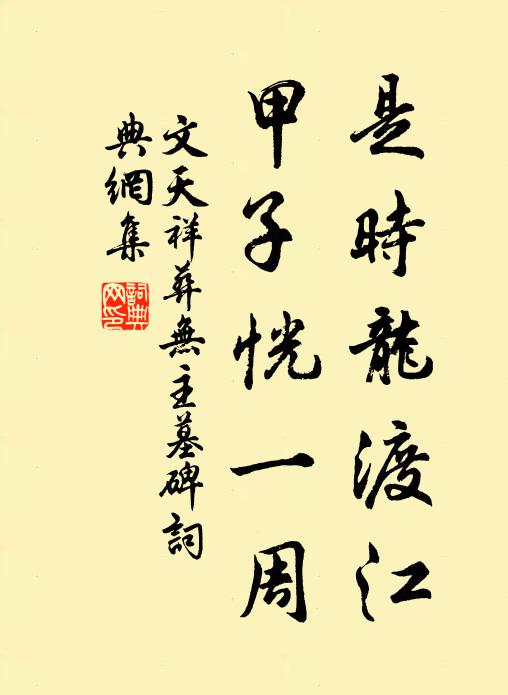 是時龍渡江
甲子恍一周
文天祥葬無主墓碑詞
典網集
詞典網印